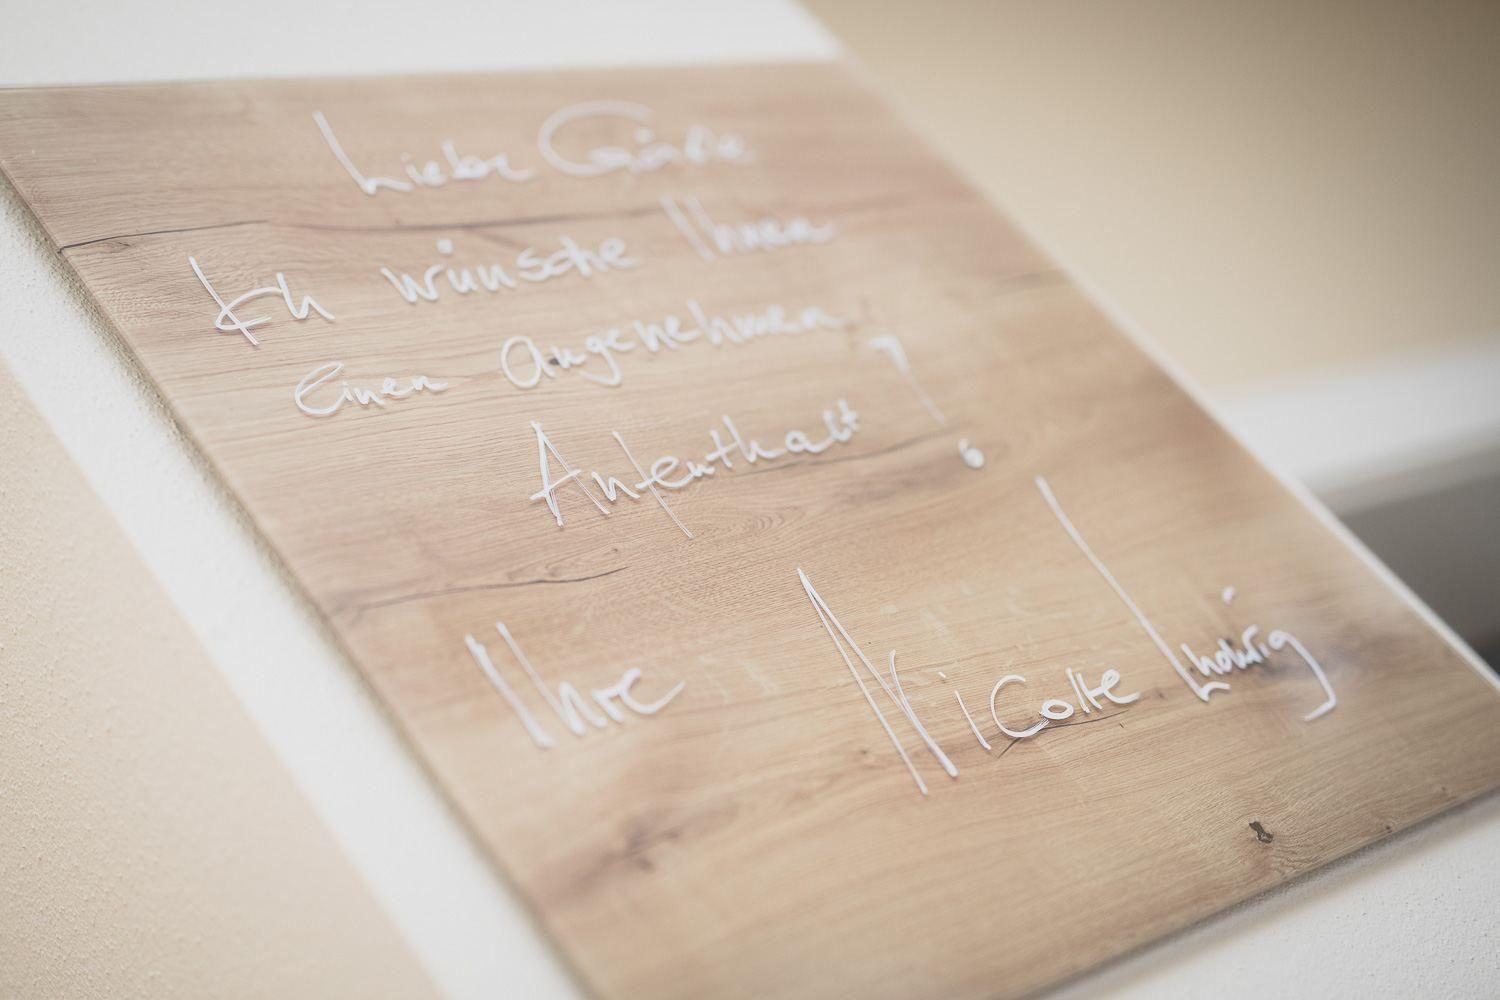 Liebe Gäste
Ich wünsche Ihnen
einen angenehmen
Aufenthalt!
Ihre Nicolle Ludwig